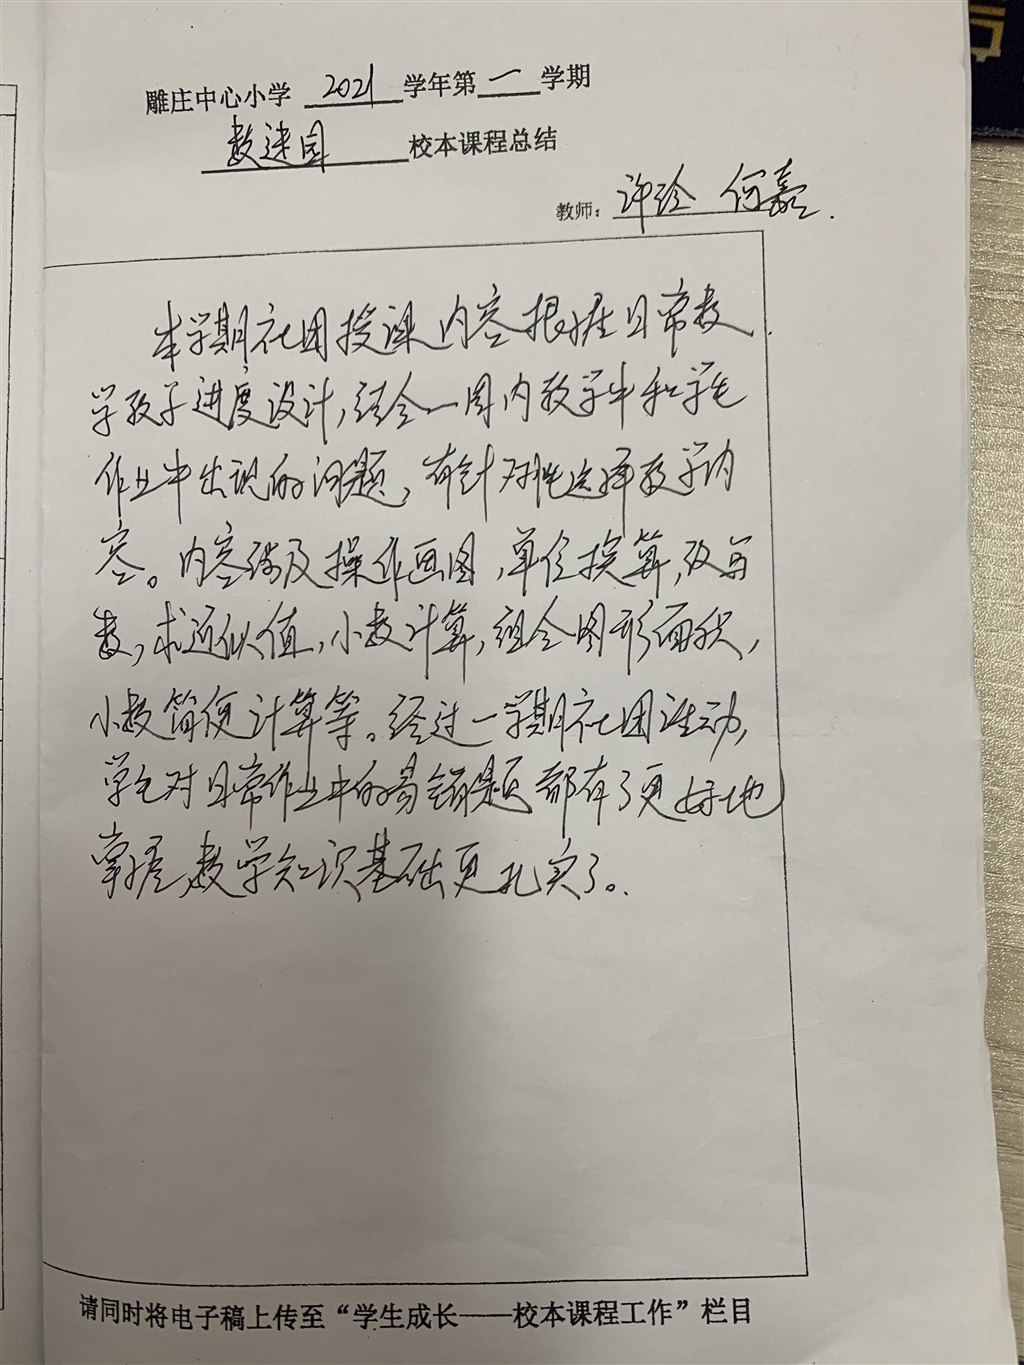 雕庄中心小学 2021 学年第一学期
数迷园 校本课程总结
教师：许玲 何嘉
本学期社团授课内容根据日常数
学教学进度设计，结合一周内教学中和学生
作业中出现的问题，有针对性选择教学内
容。内容涉及操作画图，单位换算，改写
数，求近似值，小数计算，组合图形面积，
小数简便计算等。经过一学期社团活动，
学生对日常作业中的易错题都有了更好地
掌握，数学知识基础更扎实了。
请同时将电子稿上传至“学生成长——校本课程工作”栏目